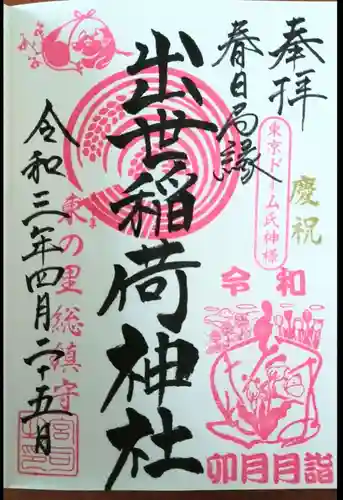 奉拝
春日局縁
東京ドーム氏神様
慶祝
出世稲荷神社
令和
卯月月詣
東の里総鎮守
令和三年四月二十五日